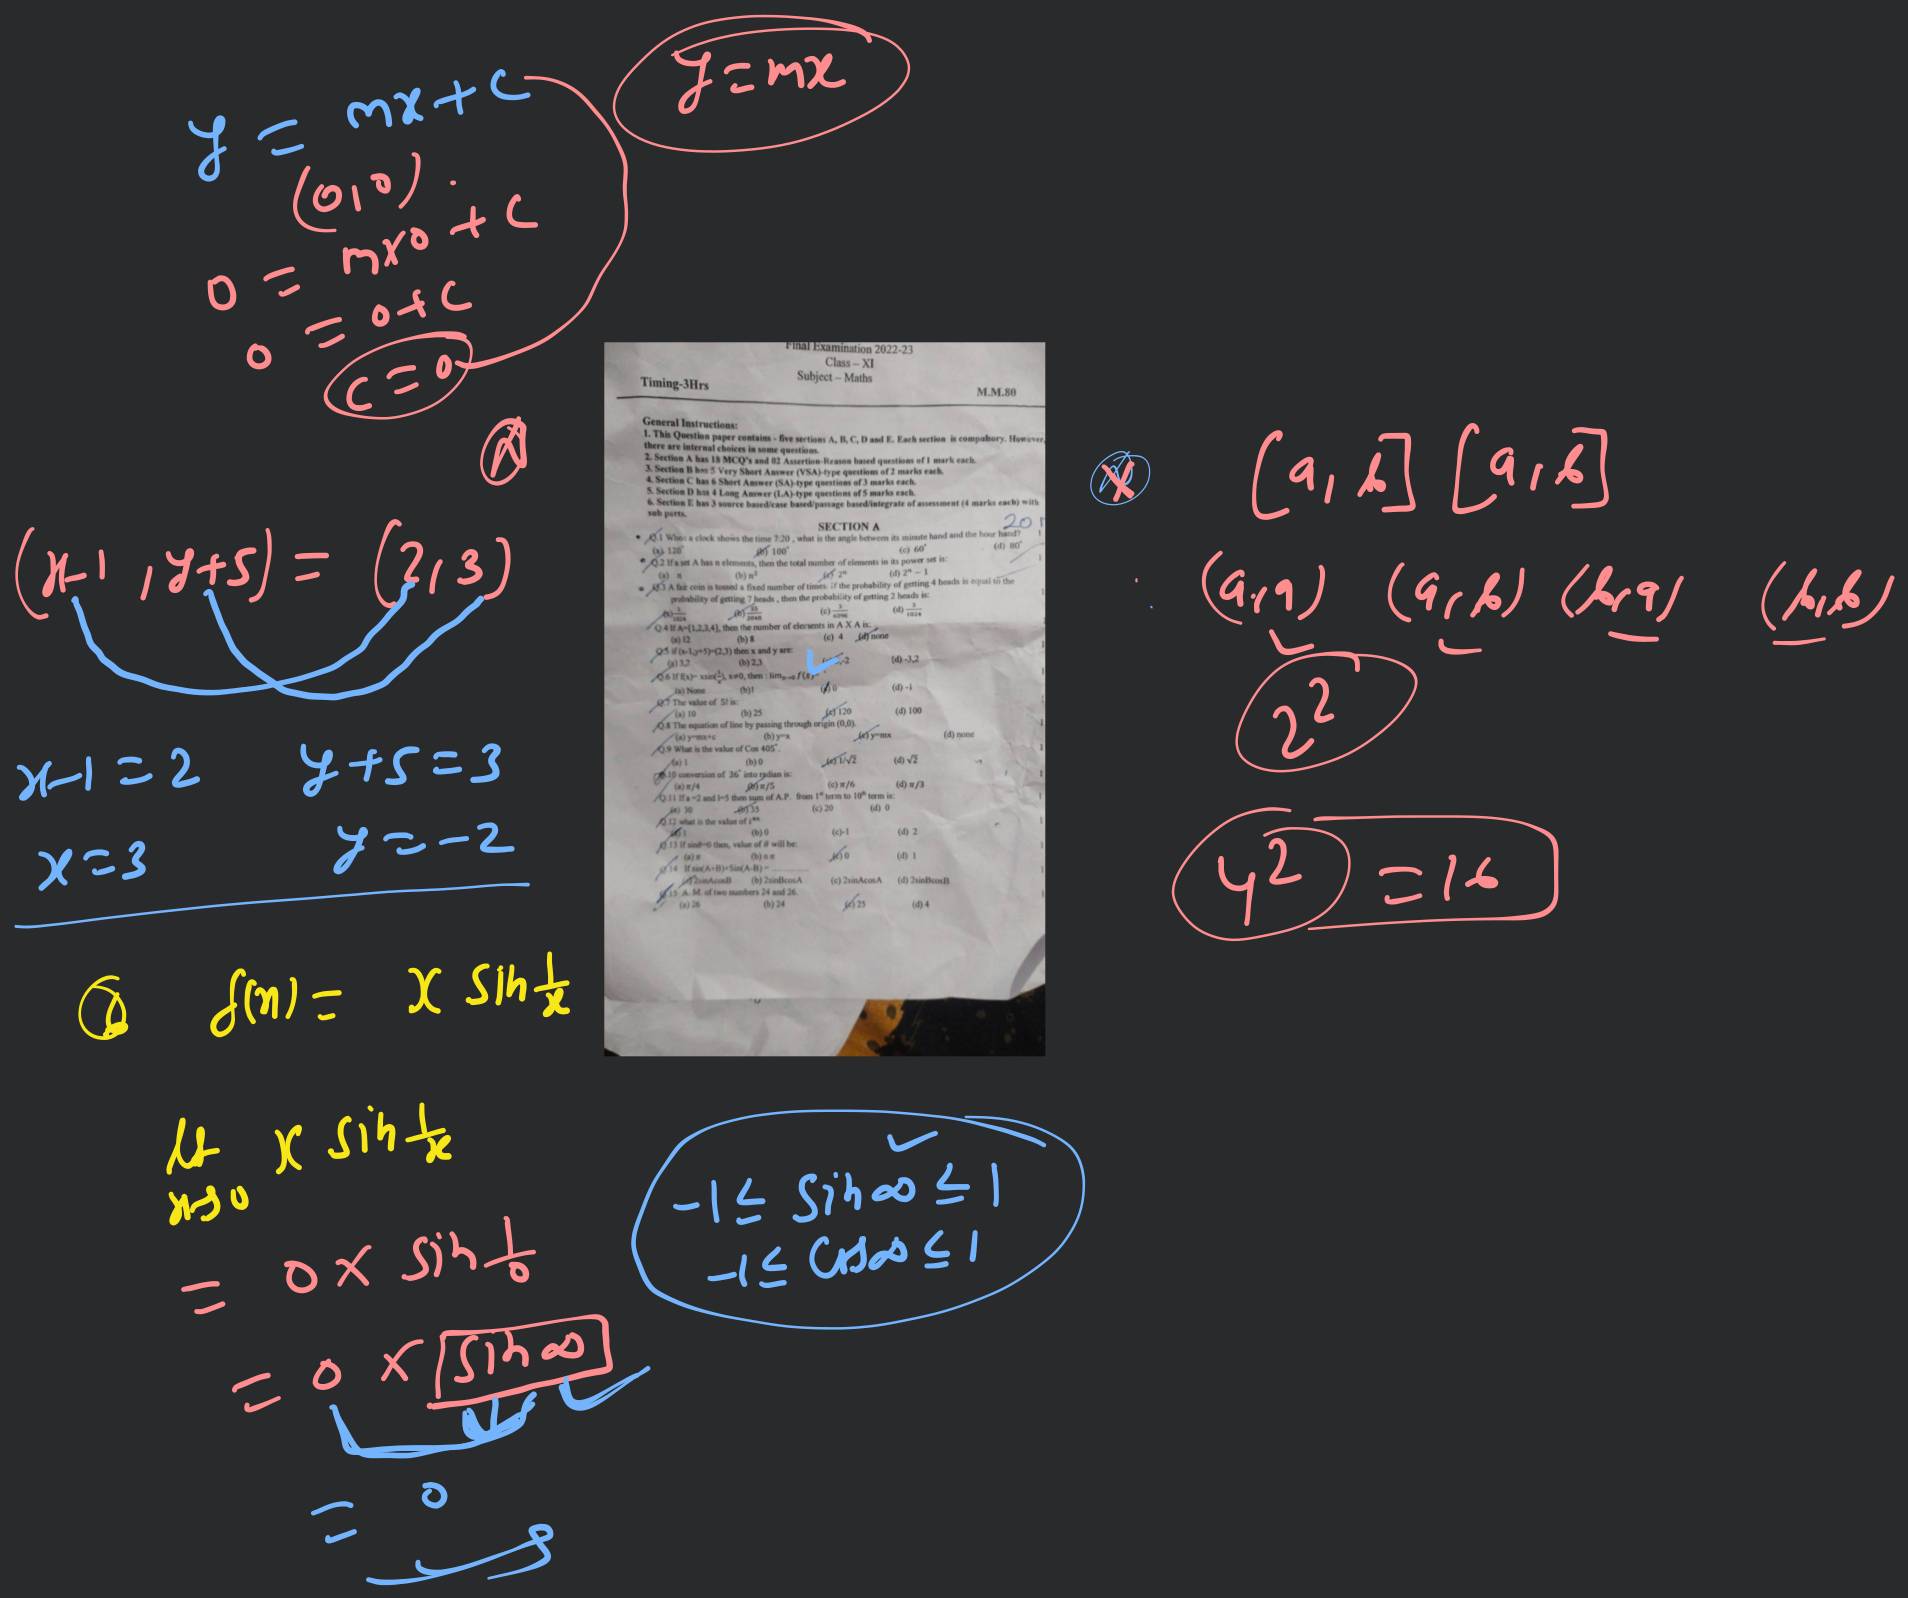 y = mx + c
y = mx
(0,0)
0 = mx0 + c
0 = 0+c
c = 0
(x-1, y+5) = (2,3)
x-1 = 2 y+5 = 3
x = 3 y = -2
f(x) = x sin 1/x
lt x→0 x sin 1/x
= 0 x sin 1/0
= 0 x sin ∞
= 0
-1 ≤ sin ∞ ≤ 1
-1 ≤ cos ∞ ≤ 1
[a, b] [a, b]
(a,a) (a,b) (b,a) (b,b)
2²
4² = 16
Final Examination 2022-23
Class – XI
Subject – Maths
Timing-3Hrs
M.M.80
General Instructions:
1. This Question paper contains - five sections A, B, C, D and E. Each section is compulsory. However,
there are internal choices in some questions.
2. Section A has 18 MCQ's and 02 Assertion-Reason based questions of 1 mark each.
3. Section B has 5 Very Short Answer (VSA)-type questions of 2 marks each.
4. Section C has 6 Short Answer (SA)-type questions of 3 marks each.
5. Section D has 4 Long Answer (LA)-type questions of 5 marks each.
6. Section E has 3 source based/case based/passage based/integrate of assessment (4 marks each) with
sub parts.
SECTION A
20
Q.1 When a clock shows the time 7:20 , what is the angle between its minute hand and the hour hand?
(a) 120° (b) 100° (c) 60° (d) 80°
Q.2 If a set A has n elements, then the total number of elements in its power set is:
(a) n (b) n² (c) 2ⁿ (d) 2ⁿ – 1
Q.3 A fair coin is tossed a fixed number of times. if the probability of getting 4 heads is equal to the
probability of getting 7 heads , then the probability of getting 2 heads is:
(b) 55/2048 (c) 3/4096 (d) 3/1024
Q.4 If A={1,2,3,4}, then the number of elements in A X A is:
(a) 12 (b) 8 (c) 4 (d) none
Q.5 if (x-1,y+5)=(2,3) then x and y are:
(a) 3,2 (b) 2,3 -2 (d) -3,2
Q.6 If f(x)= xsin(1/x), x≠0, then : lim x→0 f(x)
(a) None (b)1 (c) 0 (d) -1
Q.7 The value of 5! is:
(a) 10 (b) 25 (c) 120 (d) 100
Q.8 The equation of line by passing through origin (0,0).
(a) y=mx+c (b) y=x (c) y=mx (d) none
Q.9 What is the value of Cos 405°.
(a) 1 (b) 0 (c) 1/√2 (d) √2
Q.10 conversion of 36° into radian is:
(a) π/4 (b) π/5 (c) π/6 (d) π/3
Q.11 If a =2 and l=5 then sum of A.P. from 1st term to 10th term is:
(a) 30 (b) 35 (c) 20 (d) 0
Q.12 what is the value of
(a) 1 (b) 0 (c)-1 (d) 2
Q.13 If sinθ=0 then, value of θ will be:
(a) π (b) n π (c) 0 (d) 1
Q.14 If sin(A+B)+Sin(A-B) = ............
(a) 2sinAcosB (b) 2sinBcosA (c) 2sinAcosA (d) 2sinBcosB
Q.15 A. M. of two numbers 24 and 26.
(a) 26 (b) 24 (c) 25 (d) 4